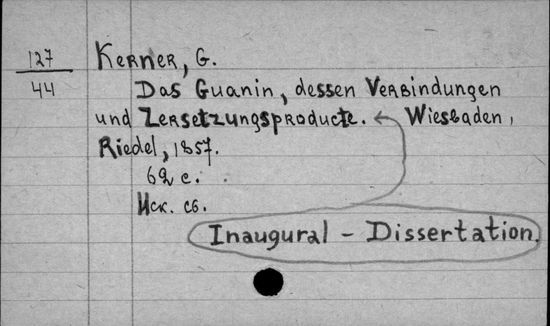 127
44
Kerner, G.
Das Guanin, dessen Verbindungen
und Zersetzungsproducte. Wiesbaden,
Riedel, 1857.
62 c.
Иск. сб.
Inaugural - Dissertation.